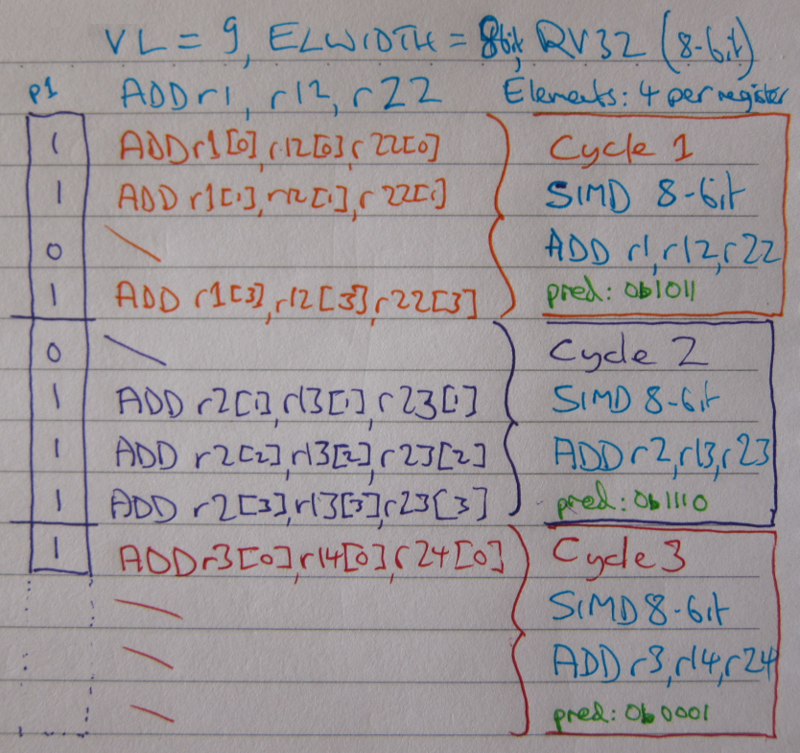 VL = 9, ELWIDTH = 8bit, RV32 (8-bit)
p1 ADD r1, r12, r22 Elements: 4 per register
1 ADD r1[0], r12[0], r22[0] Cycle 1
1 ADD r1[1], r12[1], r22[1] SIMD 8-bit
0 ADD r1, r12, r22
1 ADD r1[3], r12[3], r22[3] pred: 0b1011
0 Cycle 2
1 ADD r2[1], r13[1], r23[1] SIMD 8-bit
1 ADD r2[2], r13[2], r23[2] ADD r2, r13, r23
1 ADD r2[3], r13[3], r23[3] pred: 0b1110
1 ADD r3[0], r14[0], r24[0] Cycle 3
SIMD 8-bit
ADD r3, r14, r24
pred: 0b0001